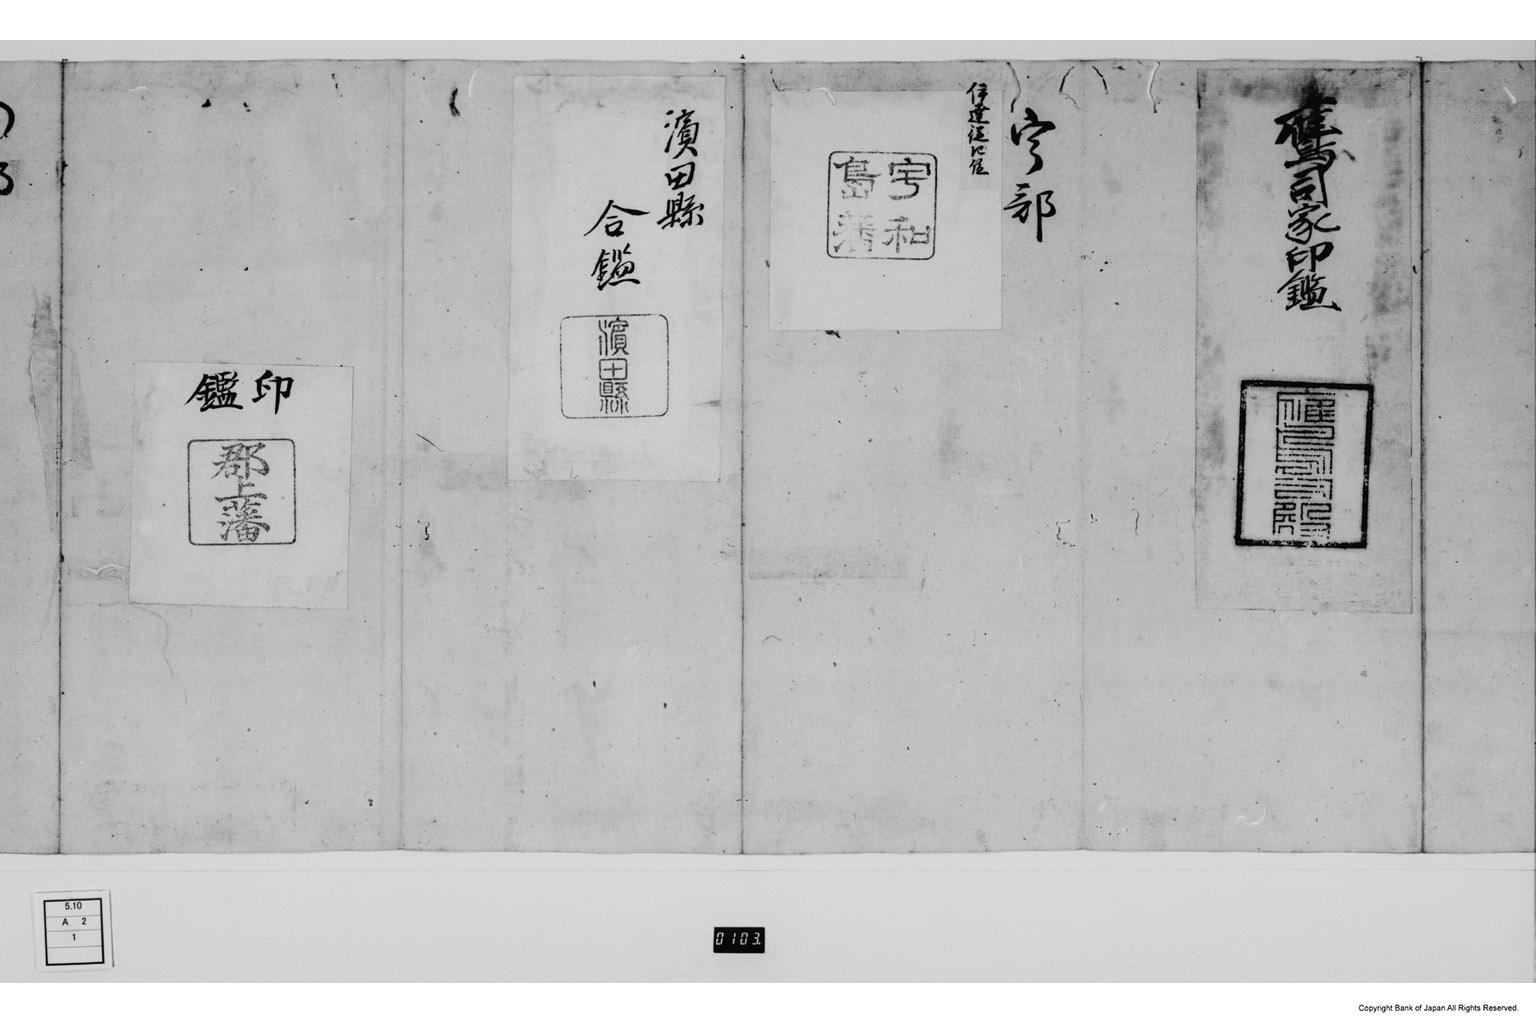 鷹司家印鑑
宇部
伊達従四位
宇和
島藩
濱田縣
合鑑
濱田縣
印鑑
郡上藩
5.10
A 2
1
0103.
Copyright Bank of Japan All Rights Reserved.